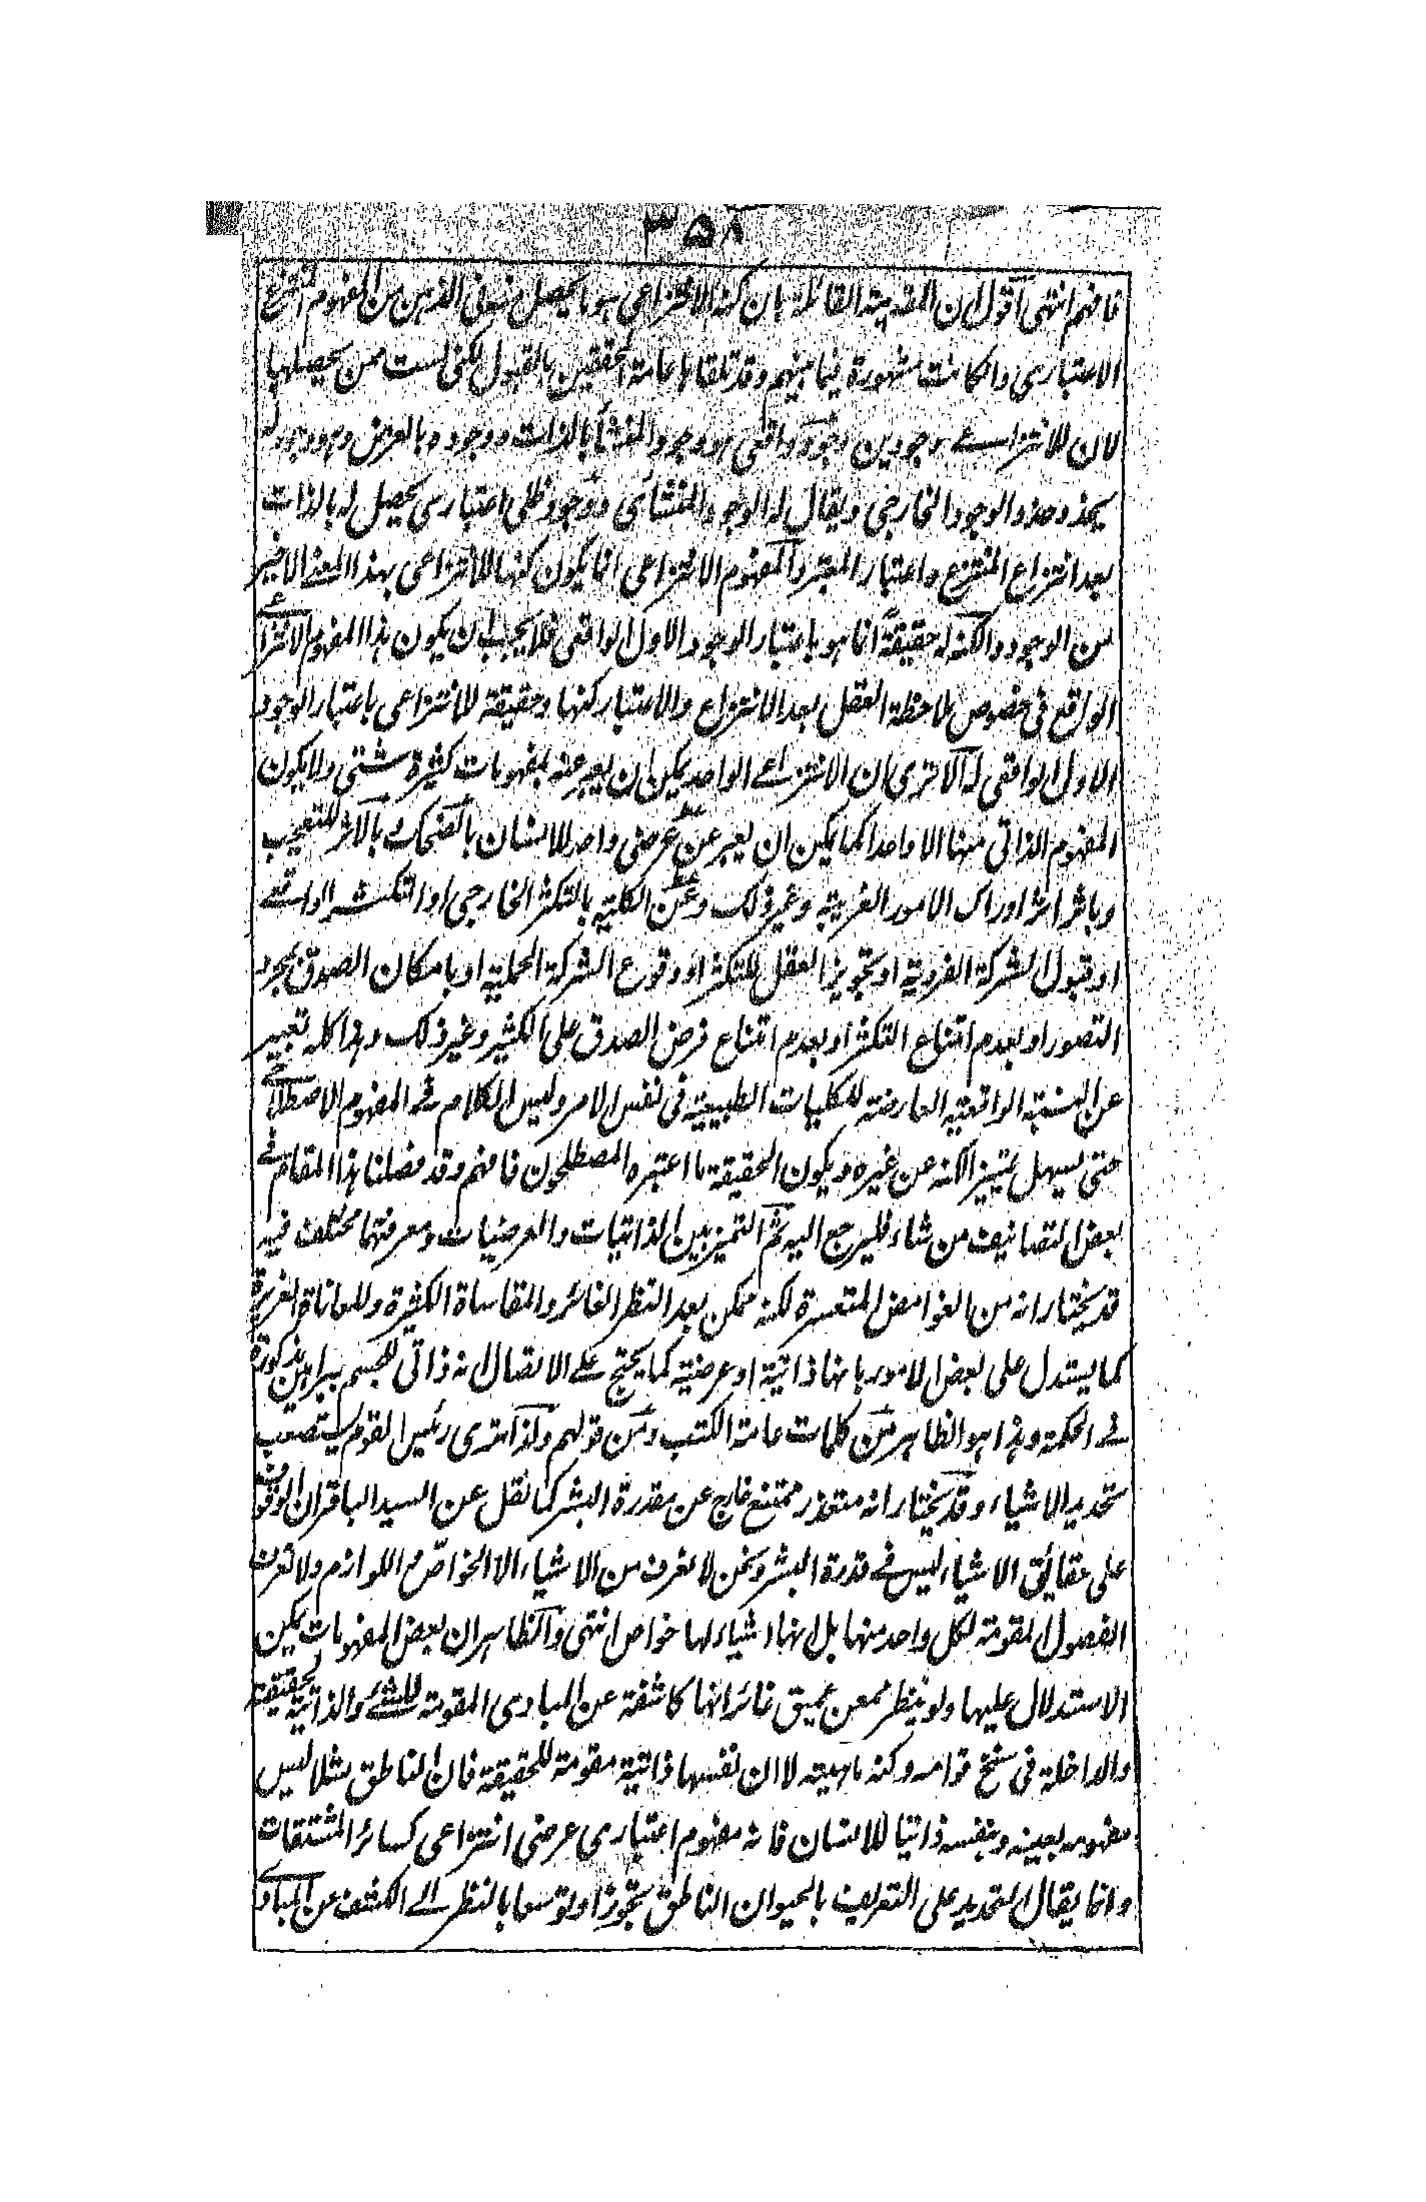 ۳۵۸
فافهم انتهى اقول ان المقدمة القائلة بان كنه الانتزاعى هو ما يحصل منه فى الذهن من المفهوم المنتزع
الاعتبارى وان كانت مشهورة فيما بينهم وقد تلقاها عامة المحققين بالقبول لكنى لست ممن يحصلها
لان للانتزاعى وجودين وجود واقعى هو وجود المنشأ بالذات ووجوده بالعرض وهو وجود له
يحذو حذو الوجود الخارجى ويقال له الوجود المنشائى ووجود ظلى اعتبارى يحصل له بالذات
بعد انتزاع المنتزع واعتبار المعتبر والمفهوم الانتزاعى انما يكون كنها للانتزاعى بهذا المعنى الاخير
من الوجود والكنه له حقيقة انما هو باعتبار الوجود الاول الواقعى فلا يجب ان يكون هذا المفهوم الانتزاعى
الواقع فى خصوص ملاحظة العقل بعد الانتزاع والاعتبار كنها وحقيقة للانتزاعى باعتبار الوجود
الاول الواقعى له الا ترى ان الانتزاعى الواحد يمكن ان يعبر عنه بمفهومات كثيرة شتى ولا يكون
المفهوم الذاتى منها الا واحدا كما يمكن ان يعبر عن عرضى واحد للانسان بالضحاك وبالاثر للتعجب
وباثر اثر ادراك الامور الغريبة وغير ذلك وعن الكلية بالتكثر الخارجى او التكثر الواقعى
او قبول الشركة الفردية او تجويز العقل للتكثر او وقوع الشركة الحملية او بامكان الصدق بمجرد
التصور او بعدم امتناع التكثر او بعدم امتناع فرض الصدق على الكثير وغير ذلك وهذا كله تعبير
عن النسبة الواقعية العارضة للكليات الطبيعية فى نفس الامر وليس الكلام فى المفهوم الاصطلاحى
حتى يسهل تمييز الكنه عن غيره ويكون الحقيقة ما اعتبره المصطلحون فافهم وقد فصلنا هذا المقام فى
بعض التصانيف من شاء فليرجع اليه ثم التميز بين الذاتيات والعرضيات ومعرفتهما مختلف فيه
قد يختار انه من الغوامض المتعسرة لكنه ممكن بعد النظر الغائر والمقاساة الكثيرة وللمعاناة الغزيرة
كما يستدل على بعض الامور بانها ذاتية او عرضية كما يحتج على الاتصال انه ذاتى للجسم ببراهين مذكورة
فى الحكمة وهذا هو الظاهر من كلمات عامة الكتب ومن قولهم ولذا ترى رئيس القوم يستصعب
تحديد الاشياء وقد يختار انه متعذر ممتنع خارج عن مقدرة البشر كما نقل عن السيد الباقر ان الوقوف
على حقائق الاشياء ليس فى قدرة البشر ونحن لا نعرف من الاشياء الا الخواص و اللوازم ولا نعرف
الفصول المقومة لكل واحد منها بل انها اشياء لها خواص انتهى والظاهر ان بعض المفهومات يمكن
الاستدلال عليها ولو بنظر ممعن عميق غائر انها كاشفة عن المبادى المقومة للشئ والذاتية لحقيقته
والداخلة فى سنخ قوامه وكنه ماهيته لا ان نفسها ذاتية مقومة للحقيقة فان الناطق مثلا ليس
مفهومه بعينه وبنفسه ذاتيا للانسان فانه مفهوم اعتبارى عرضى انتزاعى كسائر المشتقات
وانما يقال التحديد على التعريف بالحيوان الناطق تجوزا وتوسعا بالنظر الى الكشف عن المبادى